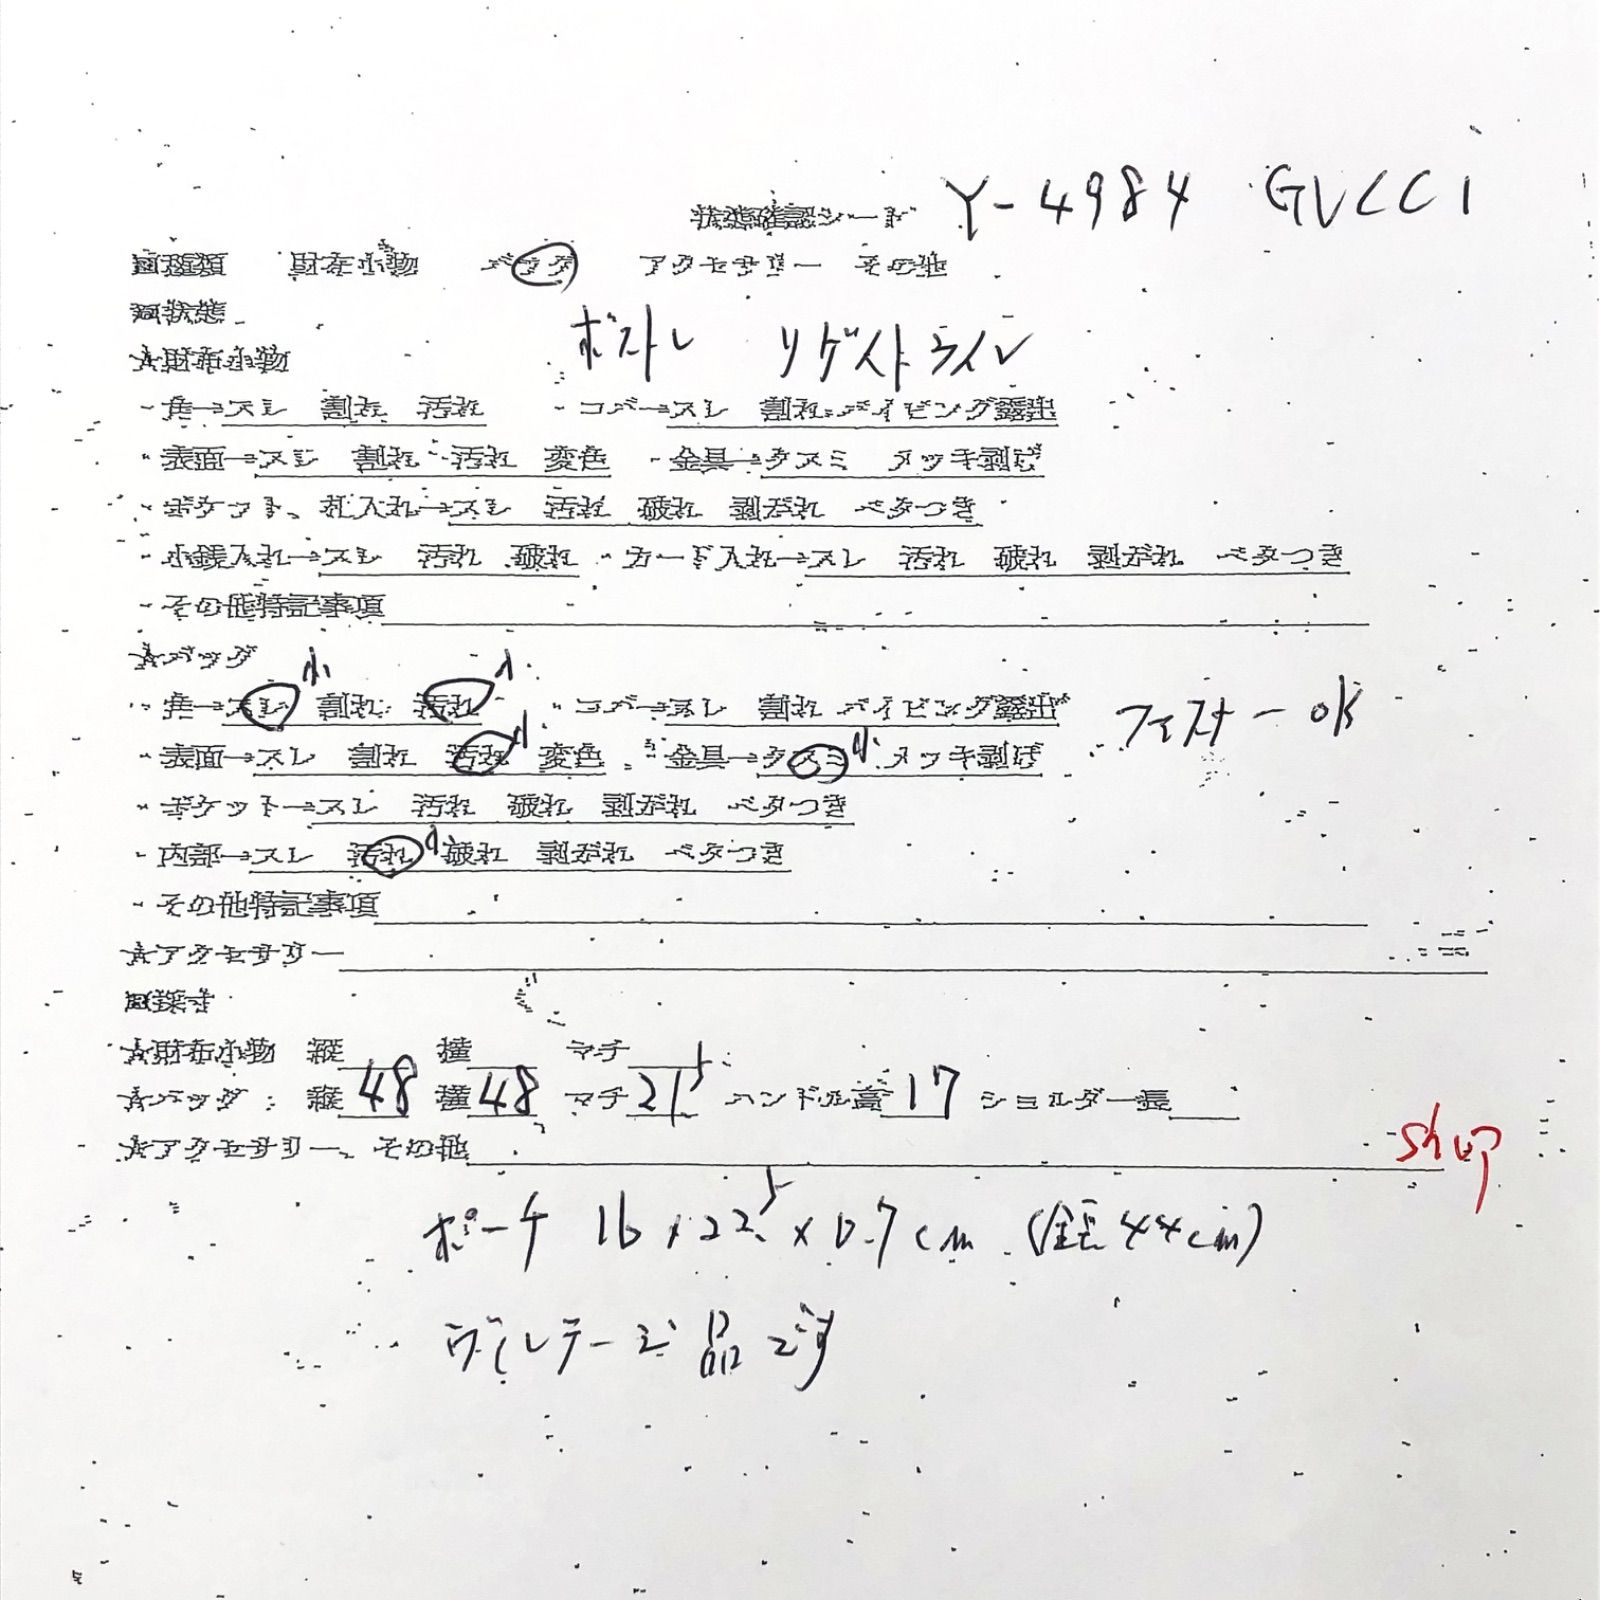 状態確認シート Y-4984 GUCCI
■種類 財布小物 バッグ アクセサリー その他
■状態
ボストン リゲイトライン
★財布小物
・角→スレ 割れ 汚れ ・コバ→スレ 割れ パイピング露出
・表面→スレ 割れ 汚れ 変色 ・金具→クスミ メッキ剥げ
・ポケット、札入れ→スレ 汚れ 破れ 剥がれ ベタつき
・小銭入れ→スレ 汚れ 破れ ・カード入れ→スレ 汚れ 破れ 剥がれ ベタつき
・その他特記事項
★バッグ 小 小
・角→スレ 割れ 汚れ ・コバ→スレ 割れ パイピング露出 ファスナーOK
・表面→スレ 割れ 汚れ小 変色 ・金具→クスミ小 メッキ剥げ
・ポケット→スレ 汚れ 破れ 剥がれ ベタつき
・内部→スレ 汚れ小 破れ 剥がれ ベタつき
・その他特記事項
★アクセサリー
■採寸
★財布小物 縦 横 マチ
★バッグ:縦48 横48 マチ21.5 ハンドル高17 ショルダー長
★アクセサリー、その他
ポーチ 16×22.5×0.7cm (全長44cm)
ヴィンテージ品です